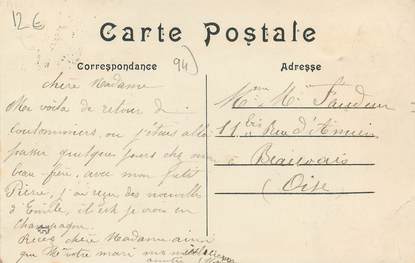 12€
Carte Postale
Correspondance
94)
Adresse
chère Madame
Me voila de retour de
Coulommiers, ou j'étais allé
passer quelques jours chez mon
beau-père, avec mon petit
Pierre, j'ai reçu des nouvelles
d'Emile, il est je crois en
Champagne.
Recevez chère Madame ainsi
que Mr votre mari mes meilleures
Mme
11 bis Rue d'Amiens
à Beauvais
(Oise)